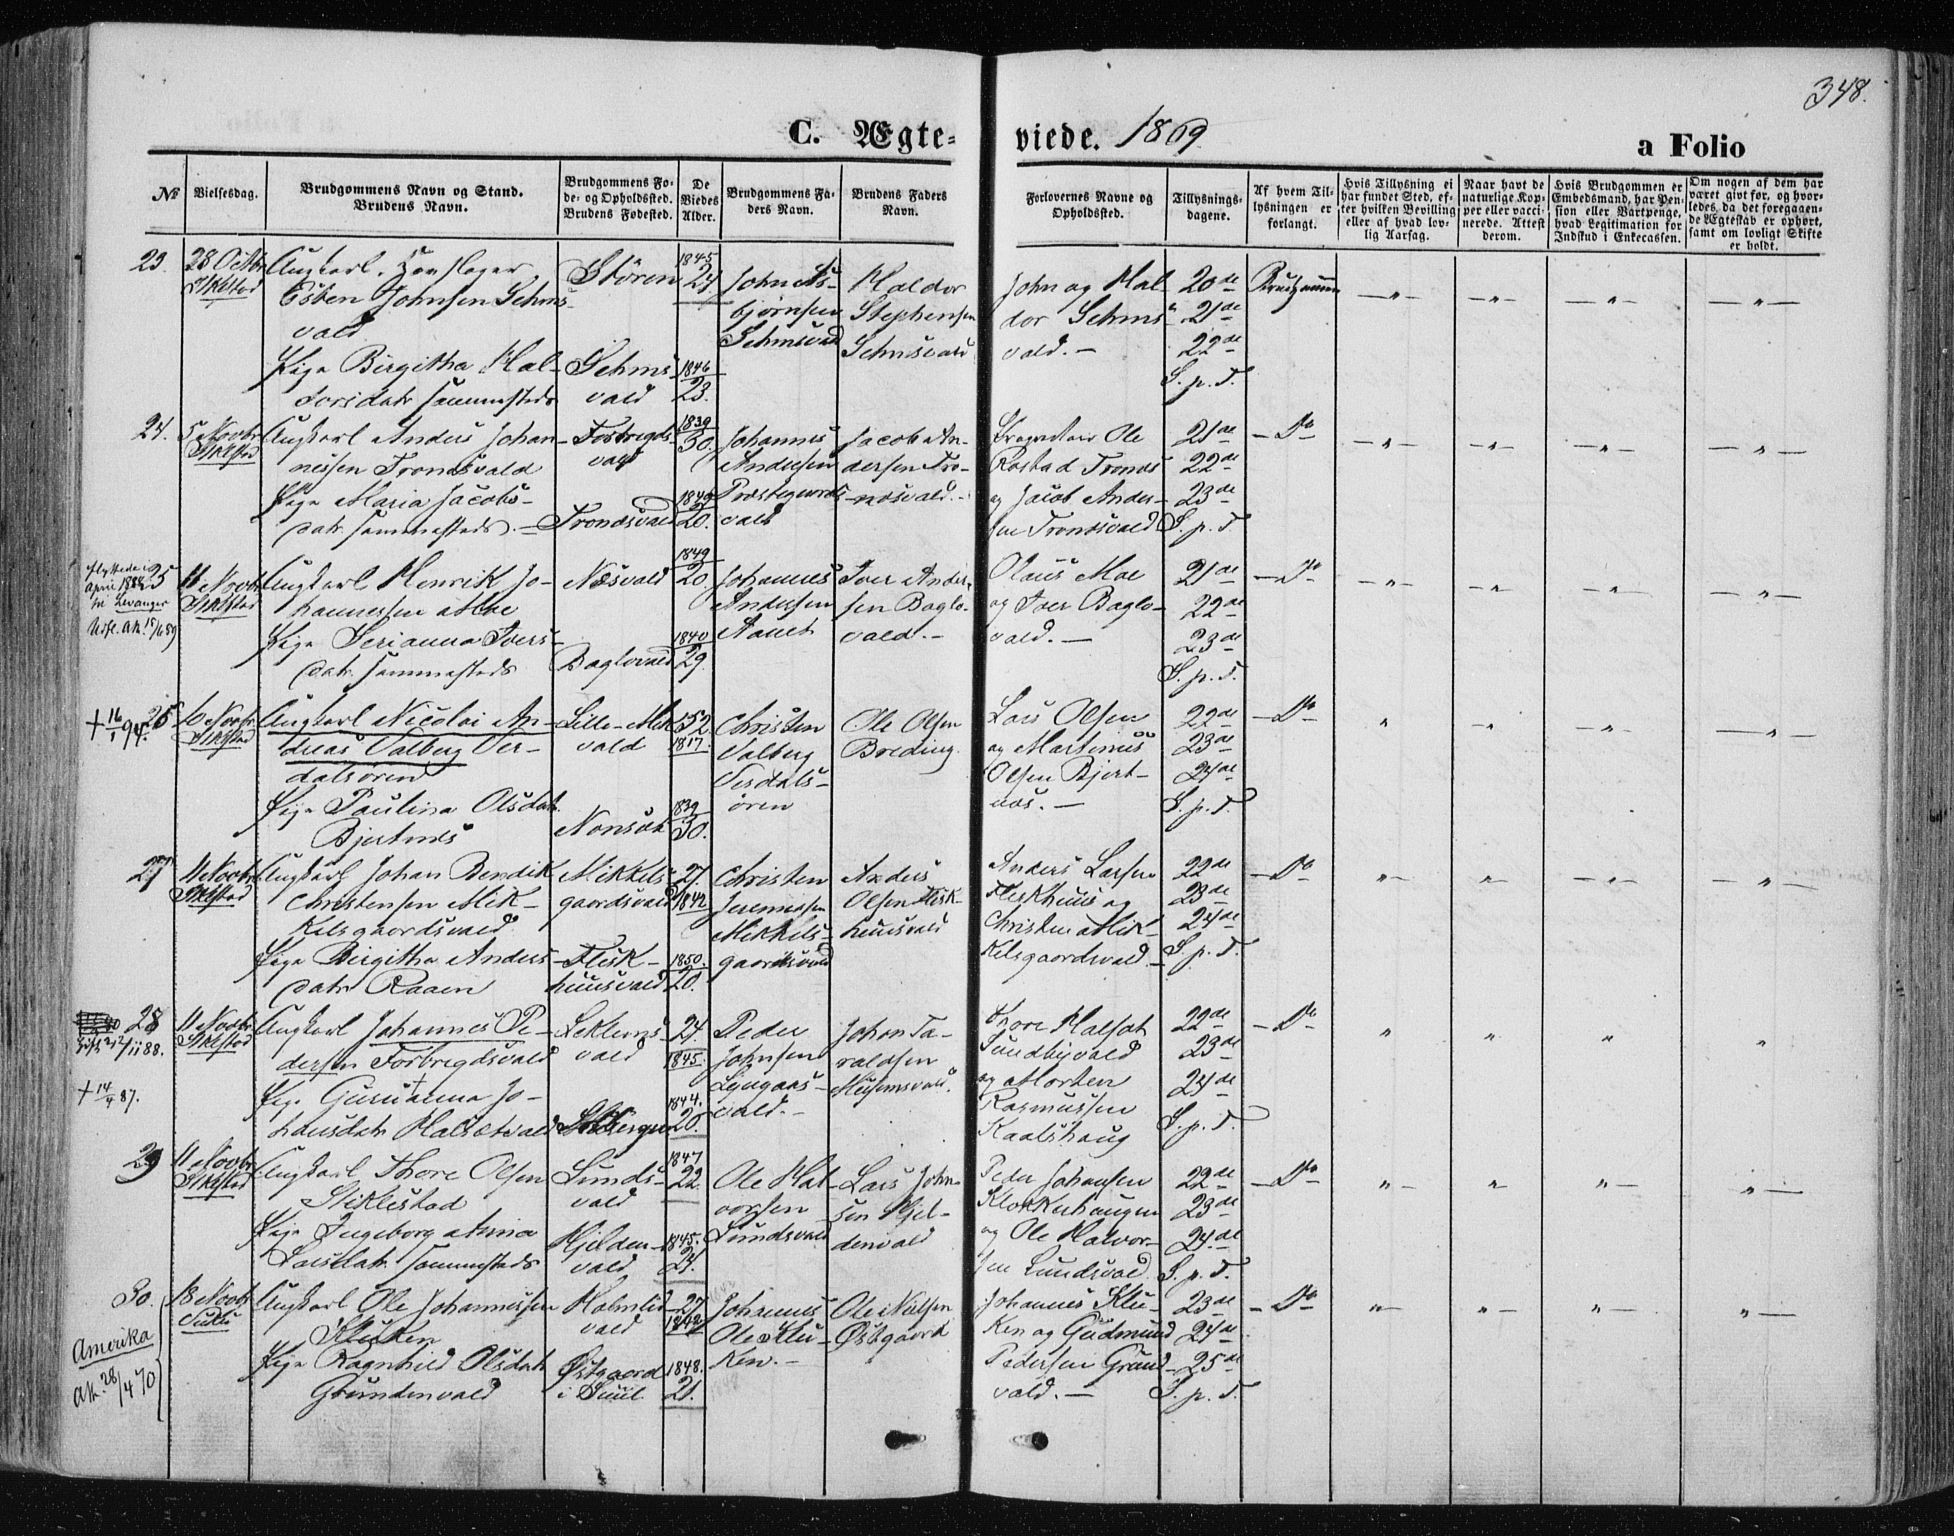 348.
C. Ægte-
viede. 1869
a Folio
№
Vielsesdag.
Brudgommens Navn og Stand.
Brudens Navn.
Brudgommens Fø-
de- og Opholdssted.
Brudens Fødested.
De
Viedes
Alder.
Brudgommens Fa-
ders Navn.
Brudens Faders
Navn.
Forlovernes Navne og
Opholdssted.
Tillysnings-
dagene.
Af hvem Til-
lysningen er
forlangt.
Hvis Tillysning ei
har fundet Sted, ef-
ter hvilken Bevilling
eller af hvad lov-
lig Aarsag.
Naar havt de
naturlige Kop-
per eller vacci-
nerede. Attest
derom.
Hvis Brudgommen er
Embedsmand, har Pen-
sion eller Vartpenge,
hvad Legitimation for
Indskud i Enkecassen.
Om nogen af dem har
været givt før, og hvor-
ledes, da det foregaaen-
de Ægteskab er ophørt,
samt om lovligt Skifte
er holdt.
23.
28 Octbr
Stklstad
Ungkarl,
Esben Johnsen Sehms-
vald
Pige Birgitha Hal-
dorsdatr sammesteds
Støren
Sehms-
vald
1845
24
1846
23.
John As-
bjørnsen
Sehmsvald
Haldor
Stephensen
Sehmsvald
John og Hal-
dor Sehms-
vald. —
20de
21de
22de
S. p. T.
Brudgommen
24.
5 Novbr
Stklstad
Ungkarl Anders Johan-
nessen Tronesvald
Pige Maria Jacobs-
datr sammesteds. —
Forbregds-
vald
Tronesvald
1839
30.
1849
20.
Johannes
Andersen
Præstegaards-
vald
Jacob An-
dersen Tro-
nesvald. —
Ole
Rostad Trones
og Jacob Ander-
sen Tronesvald
21de
22de
23de
S. p. T.
— Do
flyttede i
April 1884
til Levanger
25
11 Novbr
Stklstad
Ungkarl Henrik Jo-
hannessen Moe
Pige Serianna Ivers-
datr. sammesteds
Næsvald
Baglovald
1849
20
1840
29.
Johannes
Andersen
Iver Ander-
sen Baglo-
vald. —
Olaus Moe
og Iver Baglo-
vald. —
21de
22de
23de
S. p. T.
— Do
+ 16/1 94.
26
10 Novbr
Stklstad
Ungkarl Nicolai An-
dreas Valberg Ver-
dalsøren
Pige Paulina Olsdatr
Bjertnes
Lille-Moe-
vald
52
1817.
1839
30.
Christen
Valberg
Verdals-
øren
Ole Olsen
Breding.
Lars Olsen
og Martinus
Olsen Bjert-
næs. —
22de
23de
24de
S. p. T.
— Do
27
11 Novbr
Stklstad
Ungkarl Johan Bendik
Christensen Mik-
kelsgaardsvald
Pige Birgitha Anders-
datr Raaen
Mikkels-
gaardsvald
Flesk-
huusvald
27.
1842
1850.
20.
Christen
Jeremiasen
Mikkels-
gaardsvald
Anders
Olsen Flesk-
huusvald
Anders Larsen
Fleskhuus og
Christen Mik-
kelsgaardsvald. —
22de
23de
24de
S. p. T.
— Do
28
11 Novbr
Stklstad
+ 14/4 87.
Ungkarl Johannes Pe-
dersen Forbregdsvald
Pige Guruanna Jo-
hansdatr Halsetvald
Leklems-
vald
24.
1845.
1844.
20.
Peder
Johnsen
Lyngaas-
vald. —
Johan Ta-
raldsen
Thore Halset
Sundbyvald
og Morten
Rasmussen
Kaalshaug
22de
23de
24de
S. p. T.
— Do
29
11 Novbr
Stklstad
Ungkarl Thore Olsen
Stiklestad
Pige Ingeborg Anna
Larsdatr. sammesteds
Lunds-
vald
Hjelden-
vald
1847
22.
1845.
24.
Ole Hal-
vorsen
Lundsvald
Lars John-
sen Hjel-
denvald
Peder Johansen
Klokkerhaugen
og Ole Halvor-
sen Lundsvald.
22de
23de
24de
S. p. T.
— Do
30.
18 Novbr
Suul
Amerika
Att. 28/4 70
Ungkarl Ole Johannessen
Kluken
Pige Ragnhild Olsdatr
Grundenvald
Holmlid-
vald
Østgaard
i Suul
27
1842
1848.
21.
Johannes
Olsen Klu-
ken. —
Ole Nielsen
Østgaard
Johannes Klu-
ken og Gudmund
Pedersen Grund-
vald. —
23de
24de
25de
S. p. T.
— Do